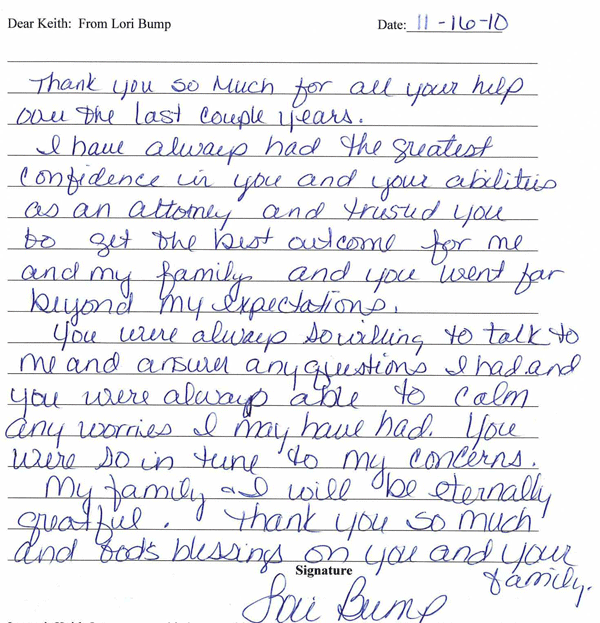 Dear Keith: From Lori Bump Date: 11-16-10
Thank you so Much for all your help
over the last couple years.
I have always had the greatest
confidence in you and your abilities
as an attorney and trusted you
to get the best outcome for me
and my family and you went far
beyond my expectations.
You were always so willing to talk to
me and answer any questions I had and
you were always able to calm
any worries I may have had. You
were so in tune to my concerns.
My family & I will be eternally
greatful. Thank you so much
and God's blessings on you and your
family.
Signature
Lori Bump